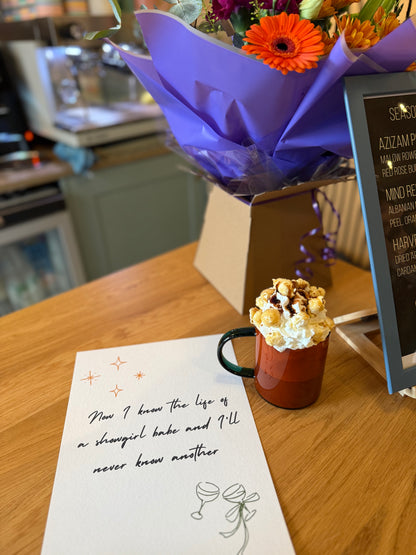 Now I know the life of
a showgirl babe and I'll
never know another
SEASO
AZIZAM P
MALOW RO
RED ROSE BU
MIND RE
ALBANIAN
PEEL, ORAN
HARV
DRIED AP
CARDA